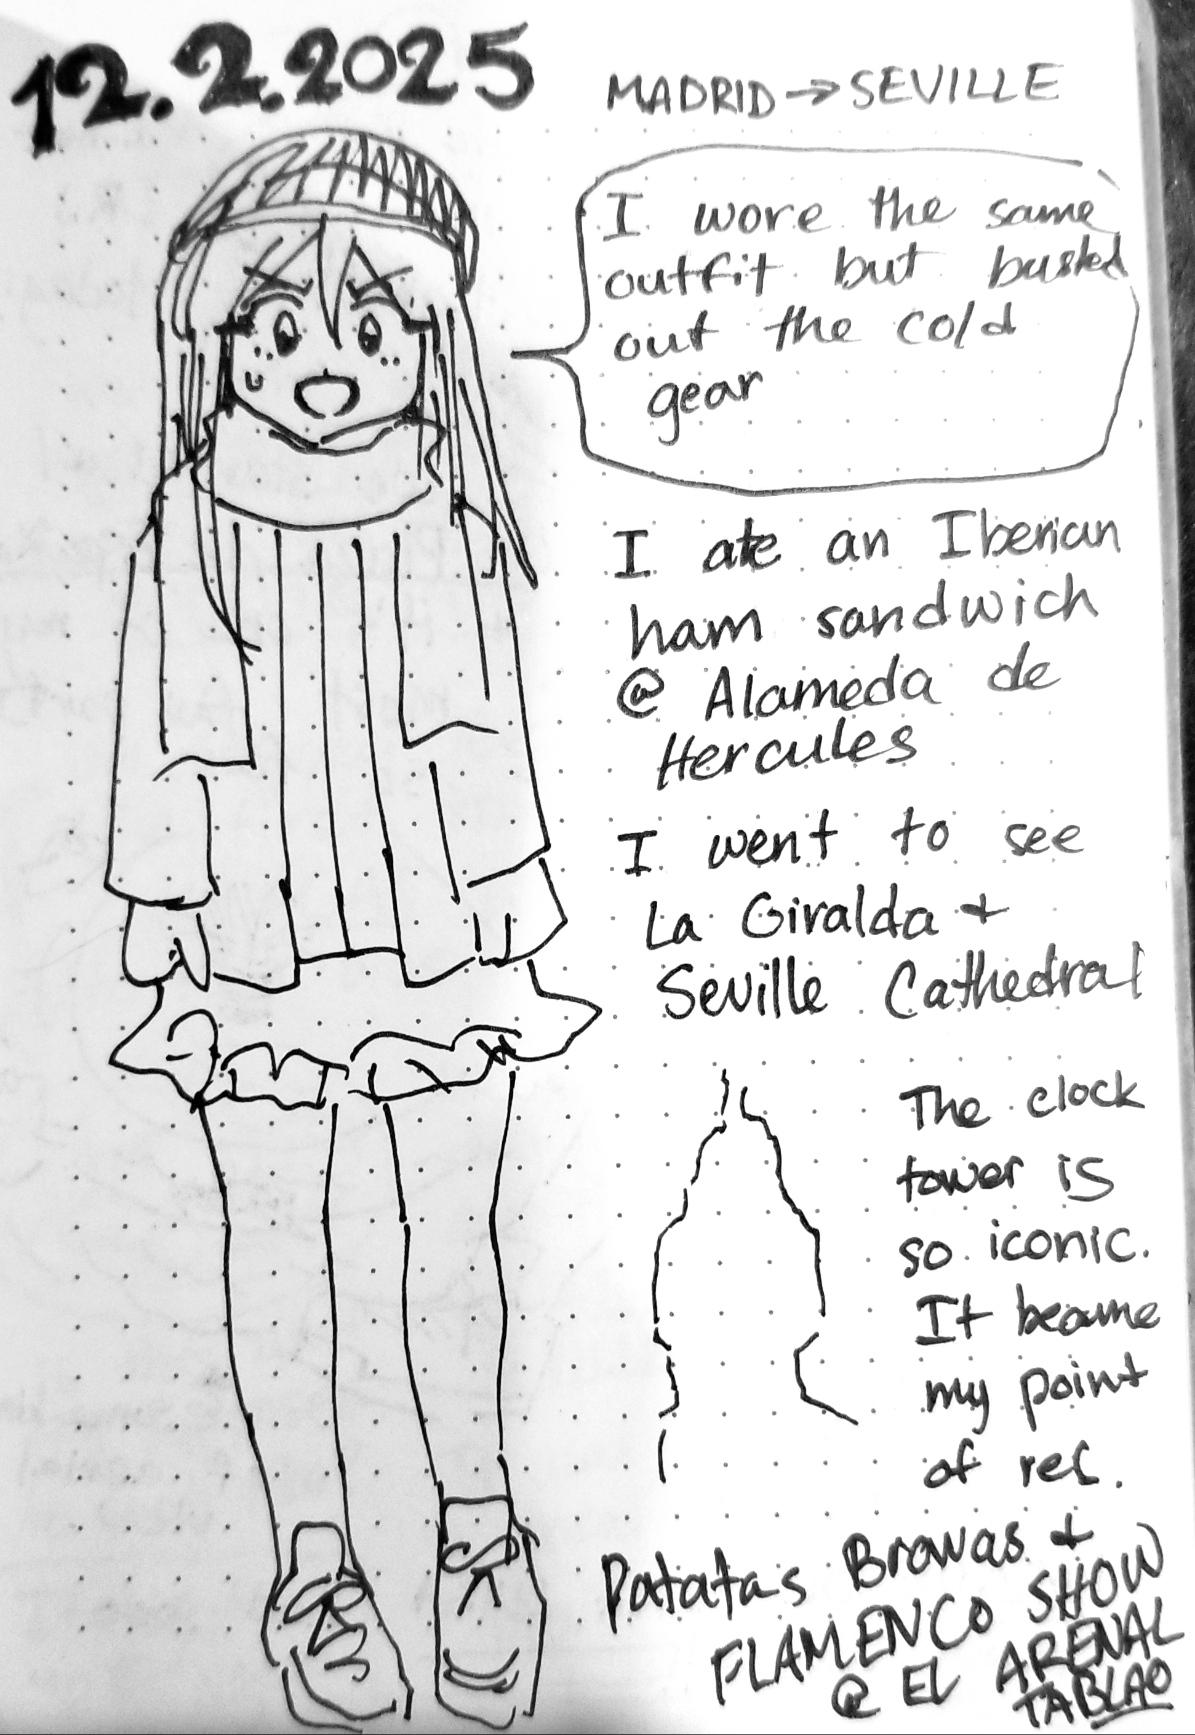 12.2.2025
MADRID → SEVILLE
I wore the same
outfit but busted
out the cold
gear
I ate an Iberian
ham sandwich
@ Alameda de
Hercules
I went to see
La Giralda +
Seville Cathedral
The clock
tower is
so iconic.
It became
my point
of ref.
Patatas Bravas +
FLAMENCO SHOW
@ EL ARENAL
TABLAO